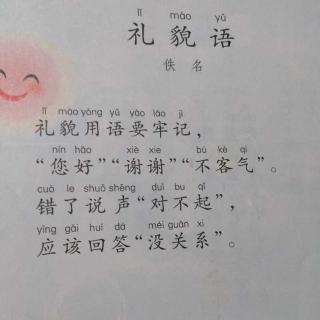 lǐ mào yǔ
礼貌语
佚名
lǐ mào yòng yǔ yào láo jì
礼貌用语要牢记，
nín hǎo xiè xie bú kè qi
“您好”“谢谢”“不客气”。
cuò le shuō shēng duì bu qǐ
错了说声“对不起”，
yīng gāi huí dá méi guān xi
应该回答“没关系”。